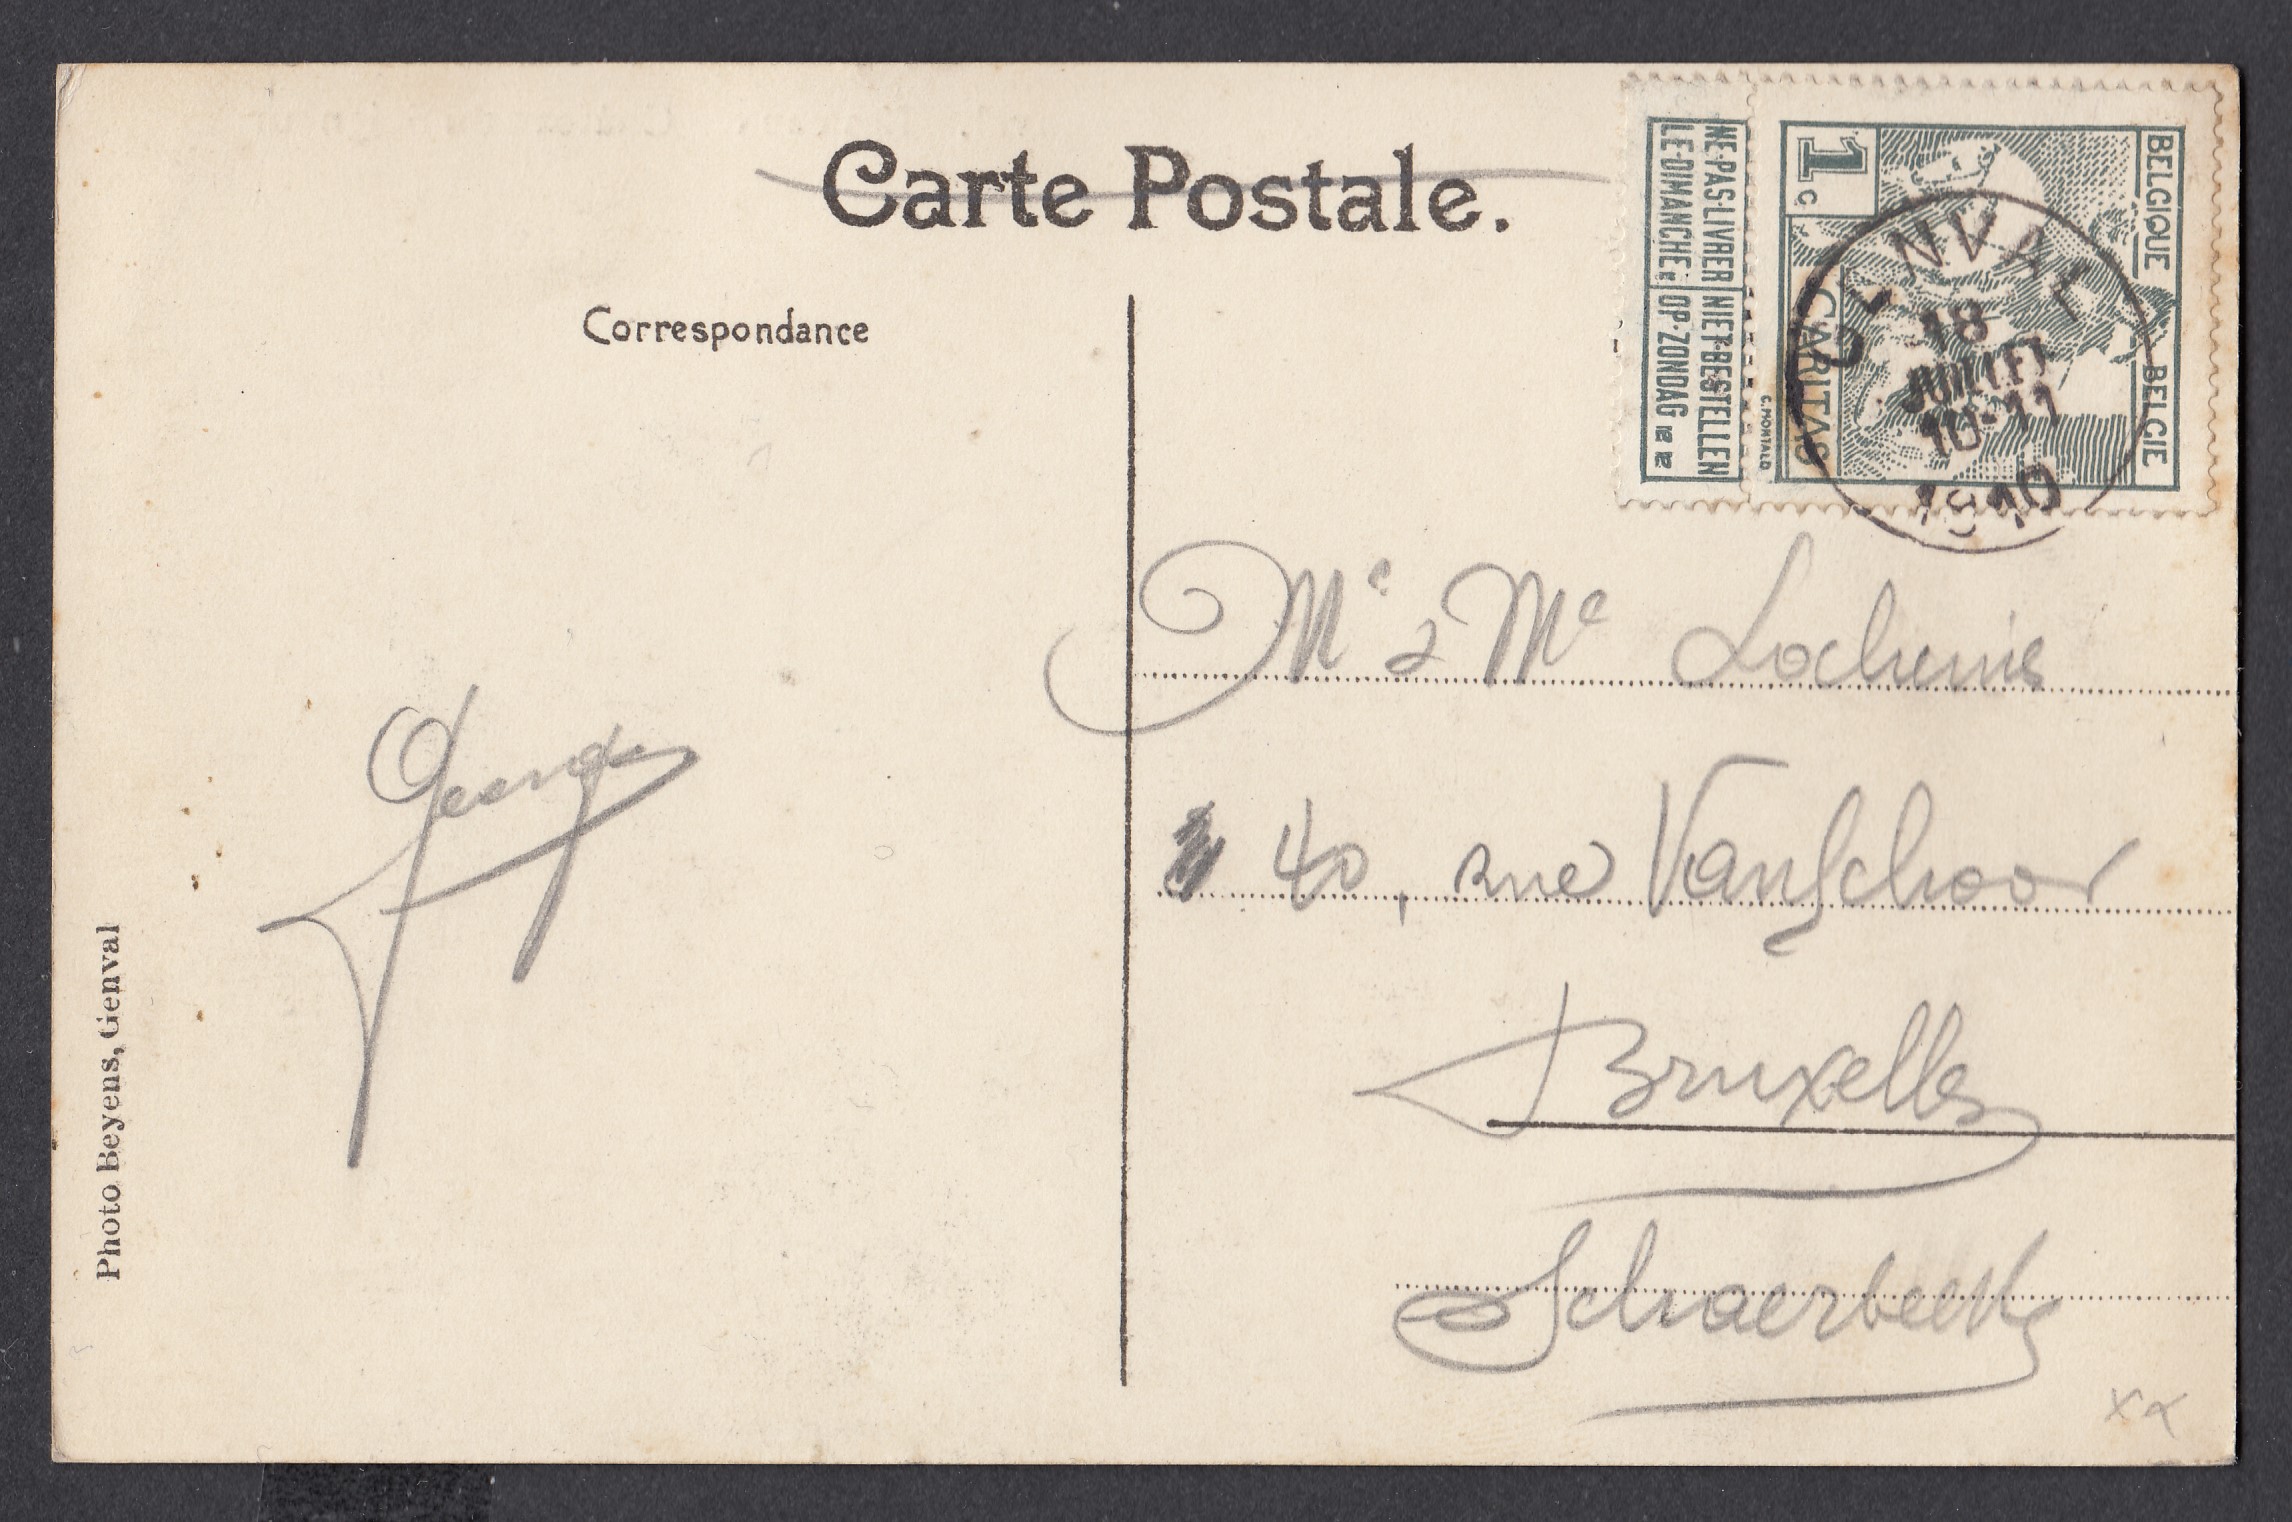 Carte Postale.
Correspondance
NE PAS LIVRER NIET BESTELLEN
LE DIMANCHE. OP ZONDAG
1 c
BELGIQUE BELGIE
CARITAS
C. MONTALD
GENVAL
18
JUILLET
10-11
1910
Mr & Me Lochenie
40, rue VanSchoor
Bruxelles
Schaerbeek
Georges
Photo Beyens, Genval